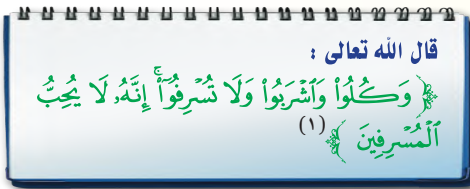 قال الله تعالى :
﴿ وَكُلُوا۟ وَٱشْرَبُوا۟ وَلَا تُسْرِفُوٓا۟ ۚ إِنَّهُۥ لَا يُحِبُّ
ٱلْمُسْرِفِينَ ﴾ (١)